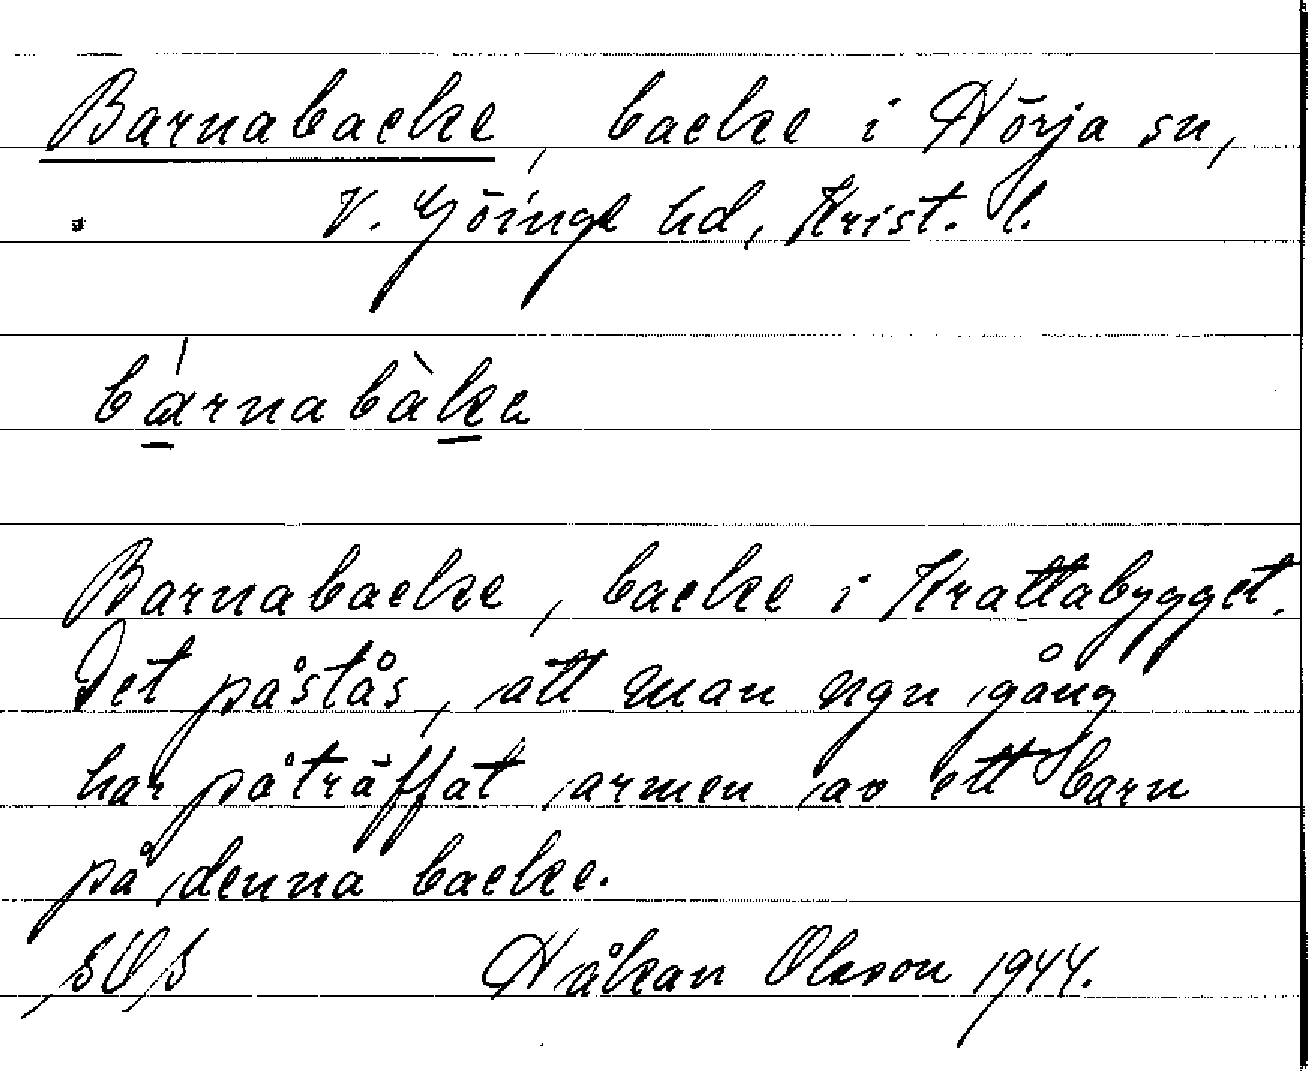 Barnabacke, backe i Hörja sn,
V. Göinge hd, Krist. l.
bárnabàka
Barnabacke, backe i Krattabygget.
Det påstås, att man ngn gång
har påträffat armen av ett barn
på denna backe.
SOS Håkan Olsson 1944.